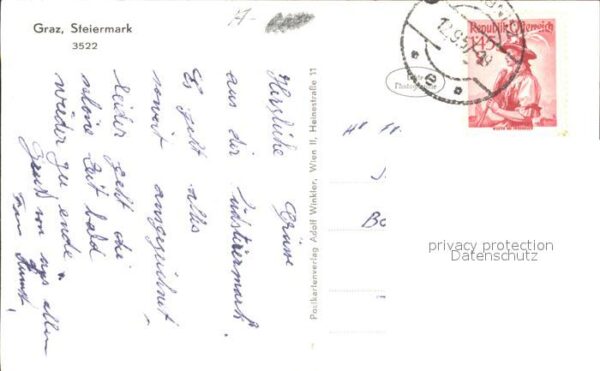 Graz, Steiermark
3522
Herzliche Grüsse
aus der Südsteiermark.
Es geht alles
soweit ausgezeichnet,
leider geht die
schöne Zeit bald
wieder zu ende.
Gruß von uns allen
Fam.
Postkartenverlag Adolf Winkler, Wien II, Heinestraße 11
Echte
Photographie
Republik Österreich
12.9.57
privacy protection
Datenschutz